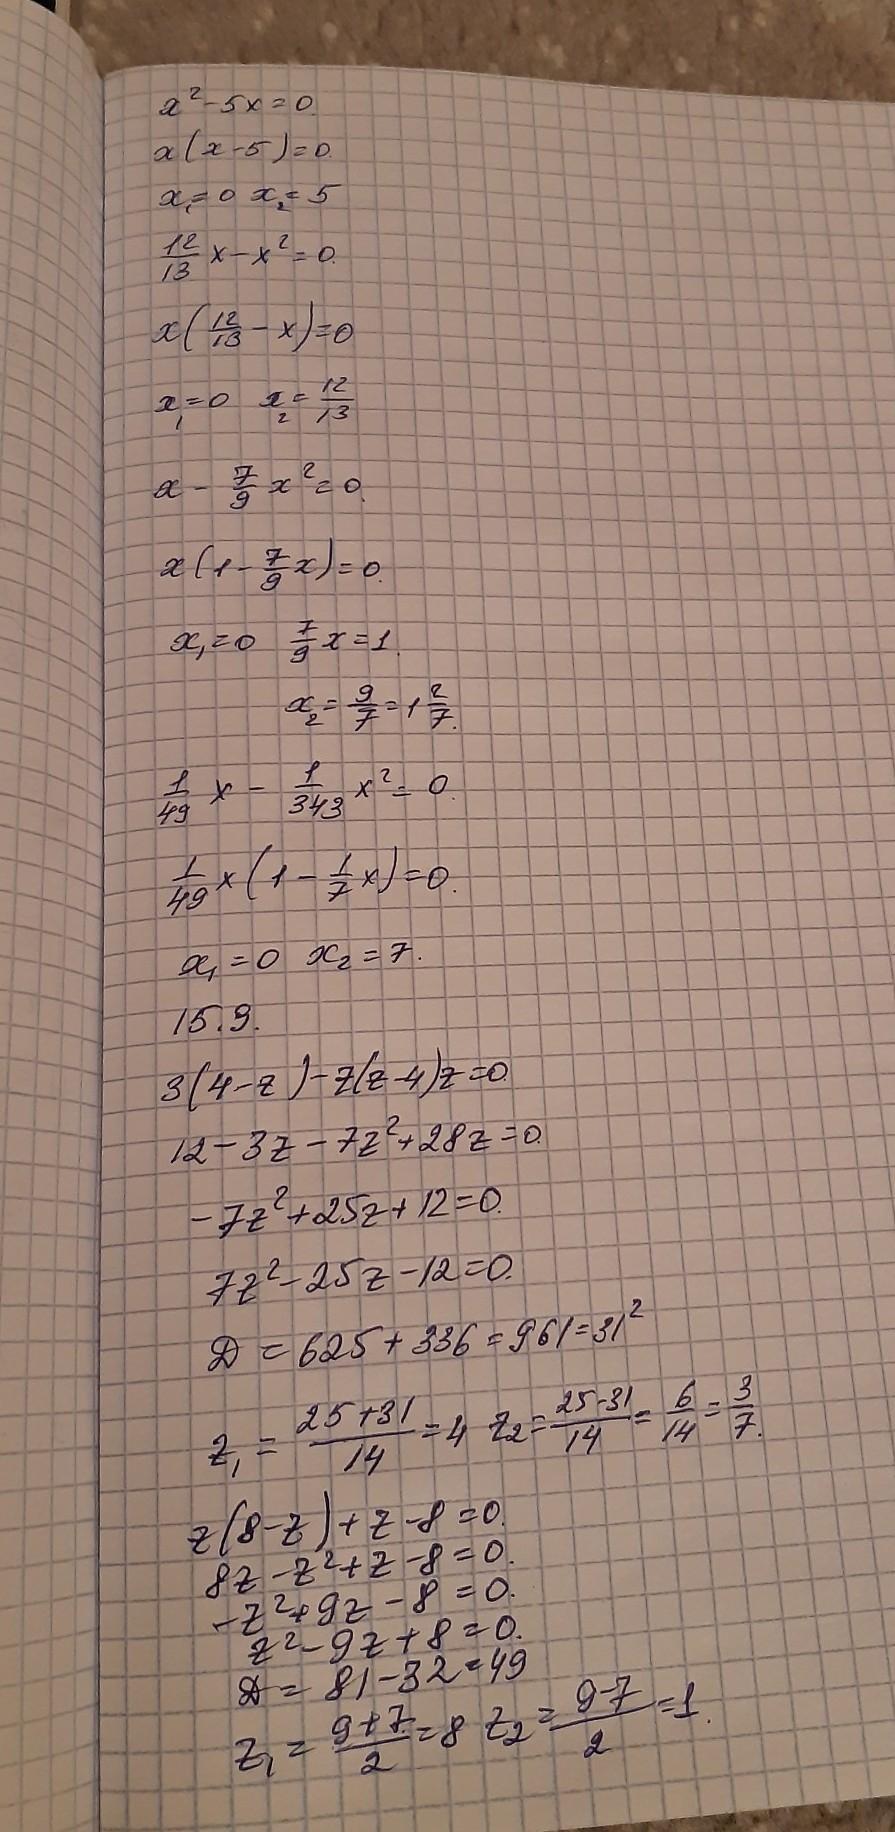 x² - 5x = 0.
x(x - 5) = 0.
x₁ = 0 x₂ = 5
12/13 x - x² = 0.
x(12/13 - x) = 0
x₁ = 0 x₂ = 12/13
x - 7/9 x² = 0.
x(1 - 7/9 x) = 0.
x₁ = 0 7/9 x = 1.
x₂ = 9/7 = 1 2/7.
1/49 x - 1/343 x² = 0.
1/49 x(1 - 1/7 x) = 0.
x₁ = 0 x₂ = 7.
15.9.
3(4 - z) - 7(z - 4)z = 0.
12 - 3z - 7z² + 28z = 0.
-7z² + 25z + 12 = 0.
7z² - 25z - 12 = 0.
D = 625 + 336 = 961 = 31²
z₁ = (25 + 31)/14 = 4 z₂ = (25 - 31)/14 = 6/14 = 3/7.
z(8 - z) + z - 8 = 0.
8z - z² + z - 8 = 0.
-z² + 9z - 8 = 0.
z² - 9z + 8 = 0.
D = 81 - 32 = 49
z₁ = (9 + 7)/2 = 8 z₂ = (9 - 7)/2 = 1.